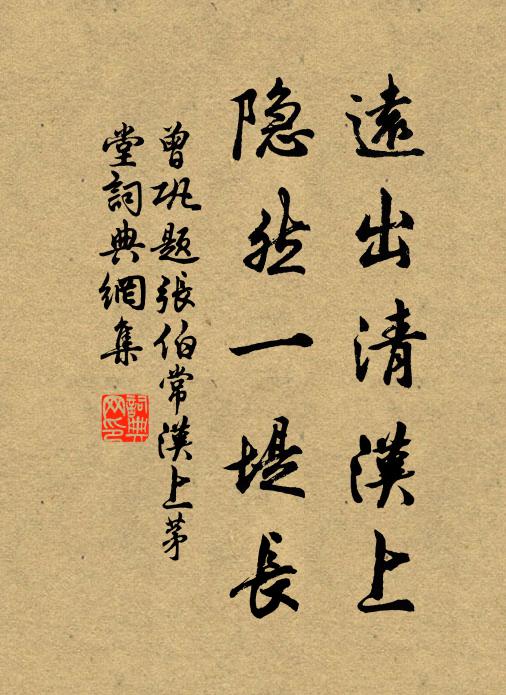 遠出清漢上
隐然一堤長
曾巩题張伯常漢上茅
堂詞典網集
詞典
网印